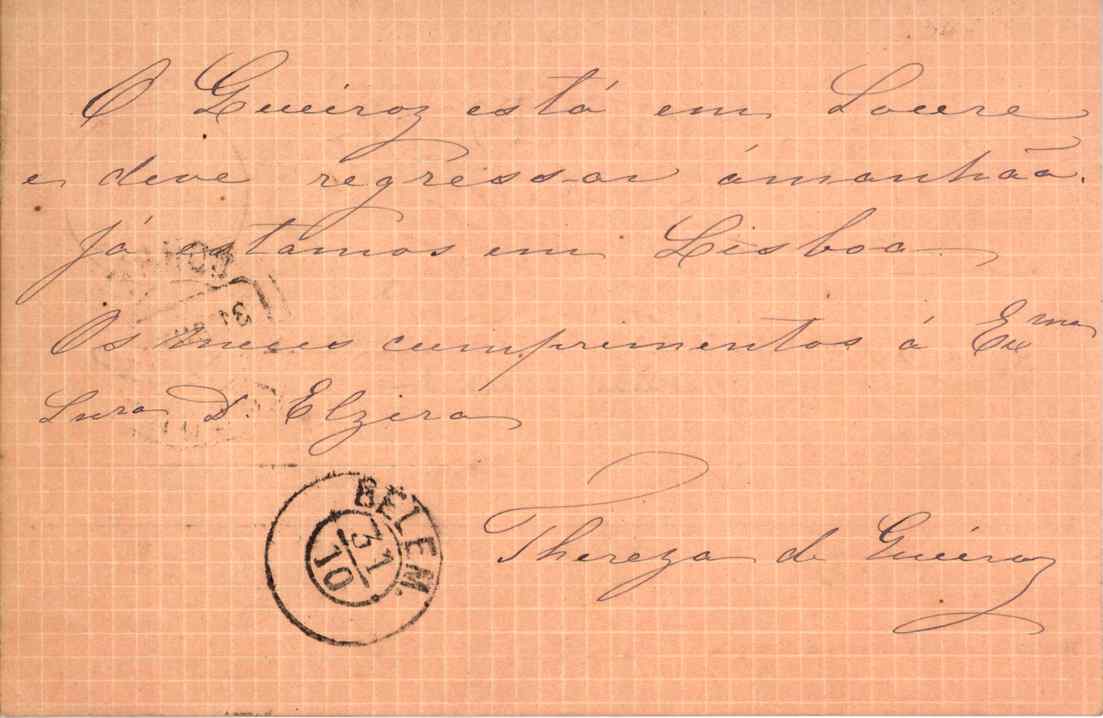 O Queiroz está em Loure
e deve regressar ámanhãa.
Já estamos em Lisboa
Os meus cumprimentos á Exma
Snra D. Elzira
Thereza de Queiroz
BELEM.
31
10
31